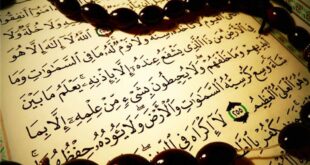 ٱللَّهُ لَآ إِلَٰهَ إِلَّا هُوَ
سِنَةٌ وَلَا نَوْمٌ لَّهُۥ مَا فِى ٱلسَّمَٰوَٰتِ وَمَا
ٱلْأَرْضِ مَن ذَا ٱلَّذِى يَشْفَعُ عِندَهُۥٓ إِلَّا بِإِذْنِهِۦ ۚ يَعْلَمُ مَا بَيْنَ
أَيْدِيهِمْ وَمَا خَلْفَهُمْ ۖ وَلَا يُحِيطُونَ بِشَىْءٍ مِّنْ عِلْمِهِۦٓ إِلَّا بِمَا
شَآءَ ۚ وَسِعَ كُرْسِيُّهُ ٱلسَّمَٰوَٰتِ وَٱلْأَرْضَ ۖ وَلَا يَـُٔودُهُۥ حِفْظُهُمَا
وَهُوَ ٱلْعَلِىُّ ٱلْعَظِيمُ ٢٥٥ لَآ إِكْرَاهَ فِى ٱلدِّينِ
يَكْفُرْ